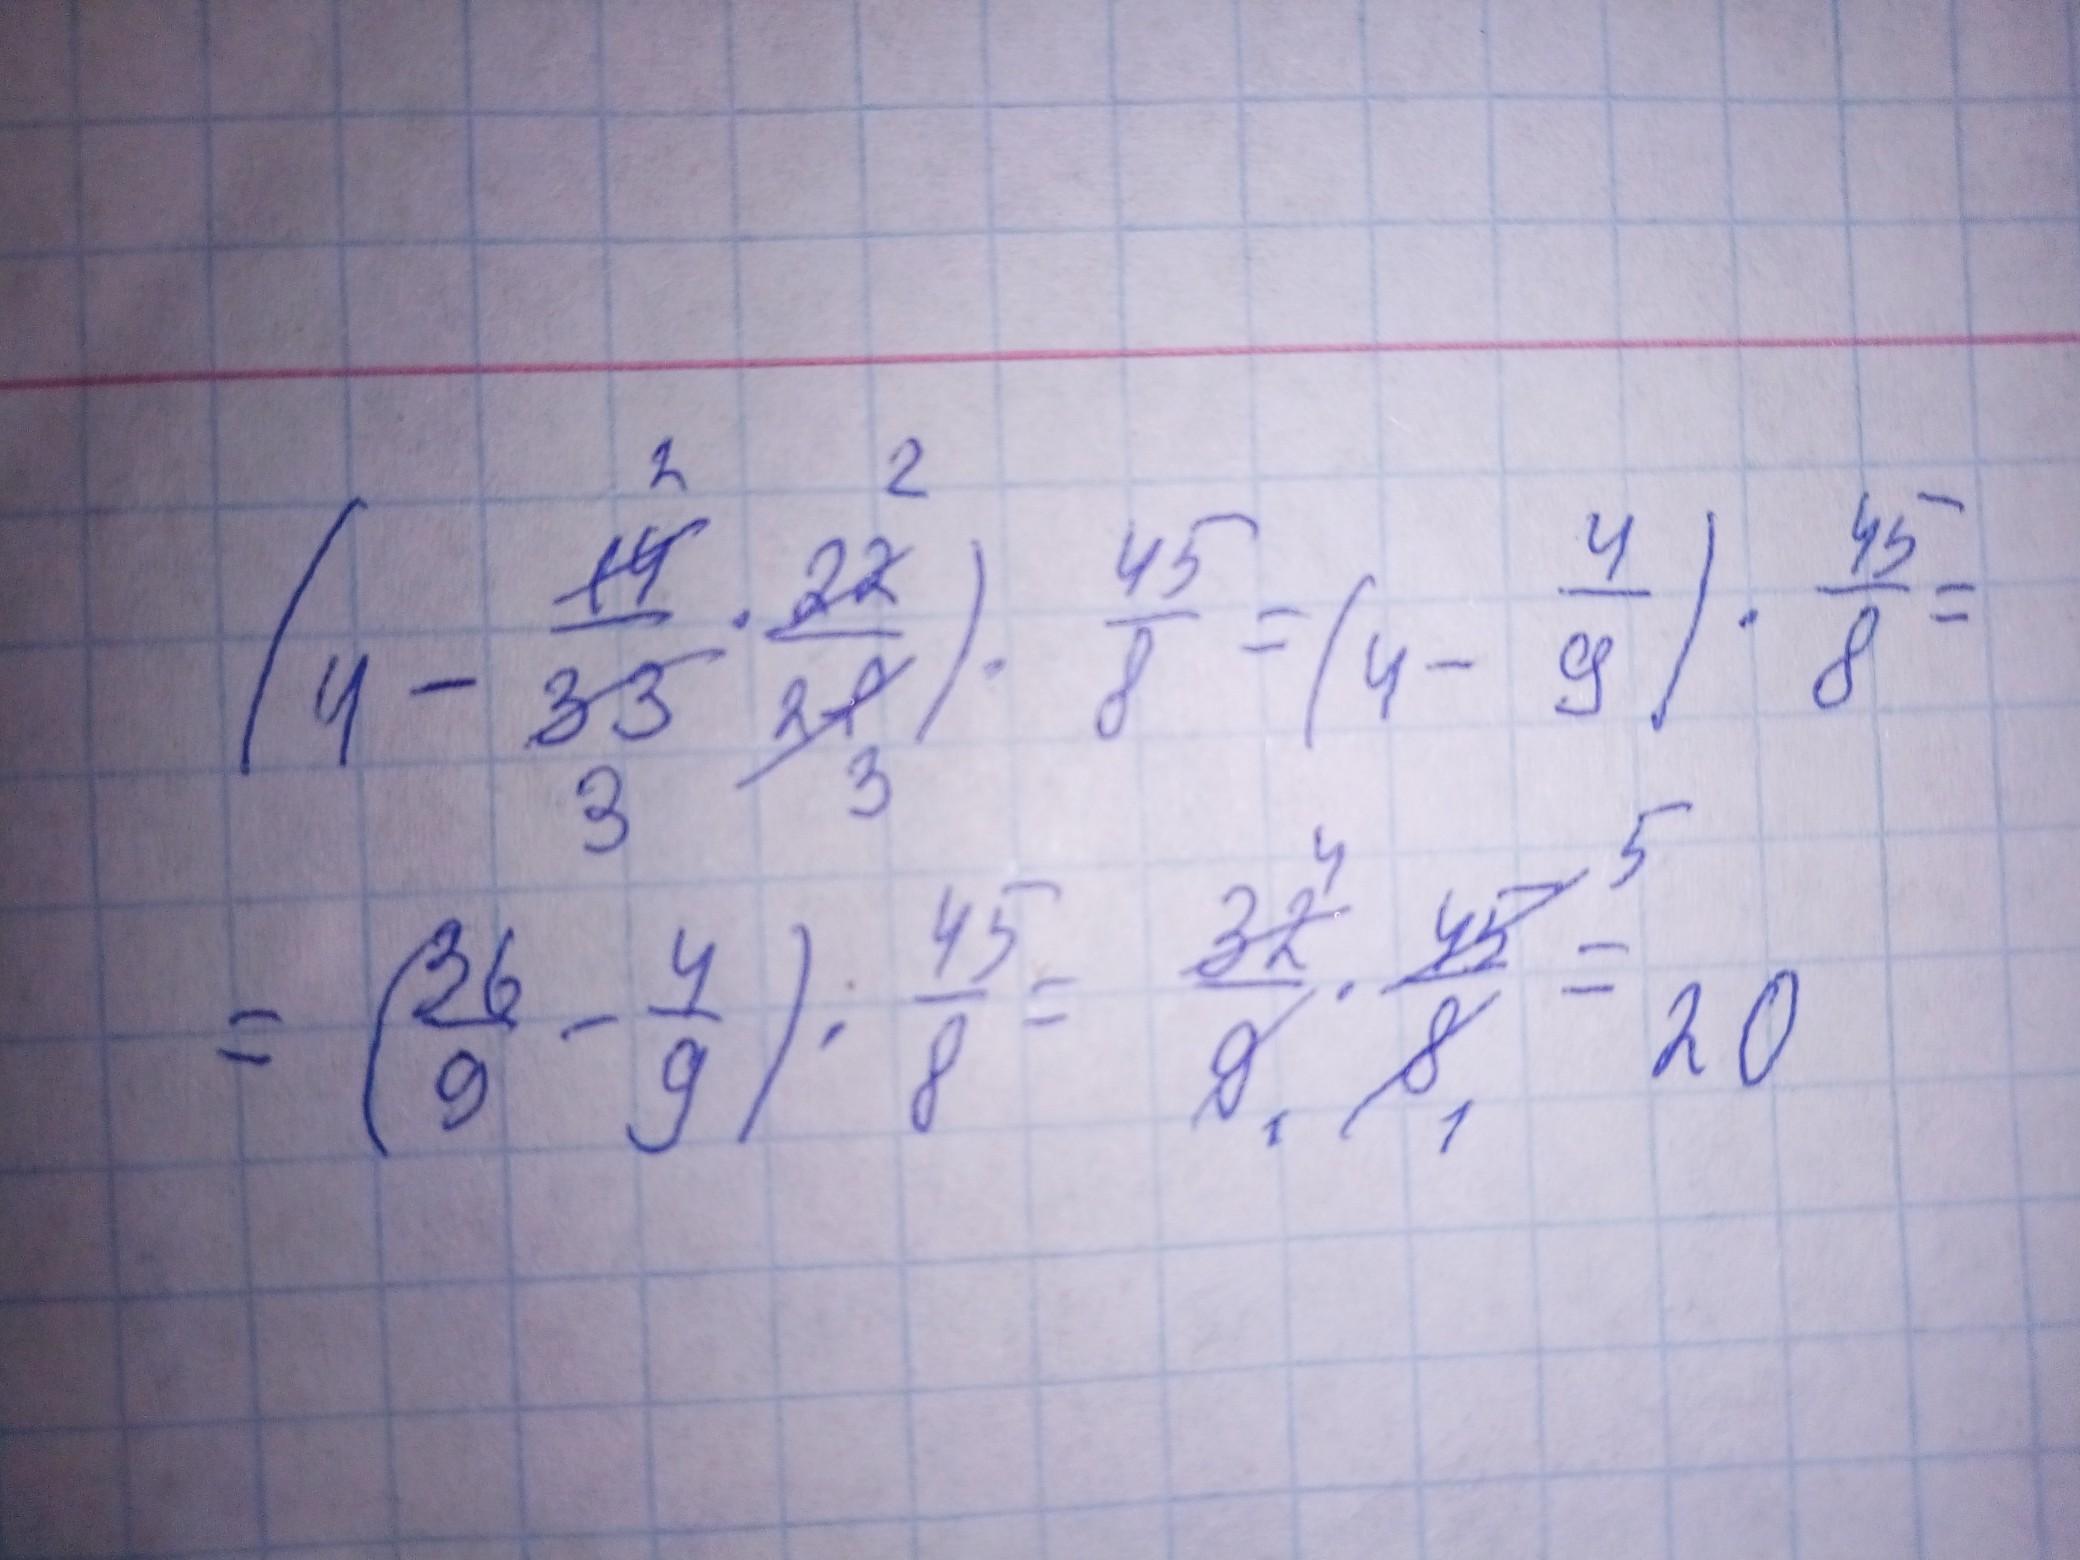 (4 - 14/33 · 22/21) · 45/8 = (4 - 4/9) · 45/8 =
= (36/9 - 4/9) · 45/8 = 32/9 · 45/8 = 20